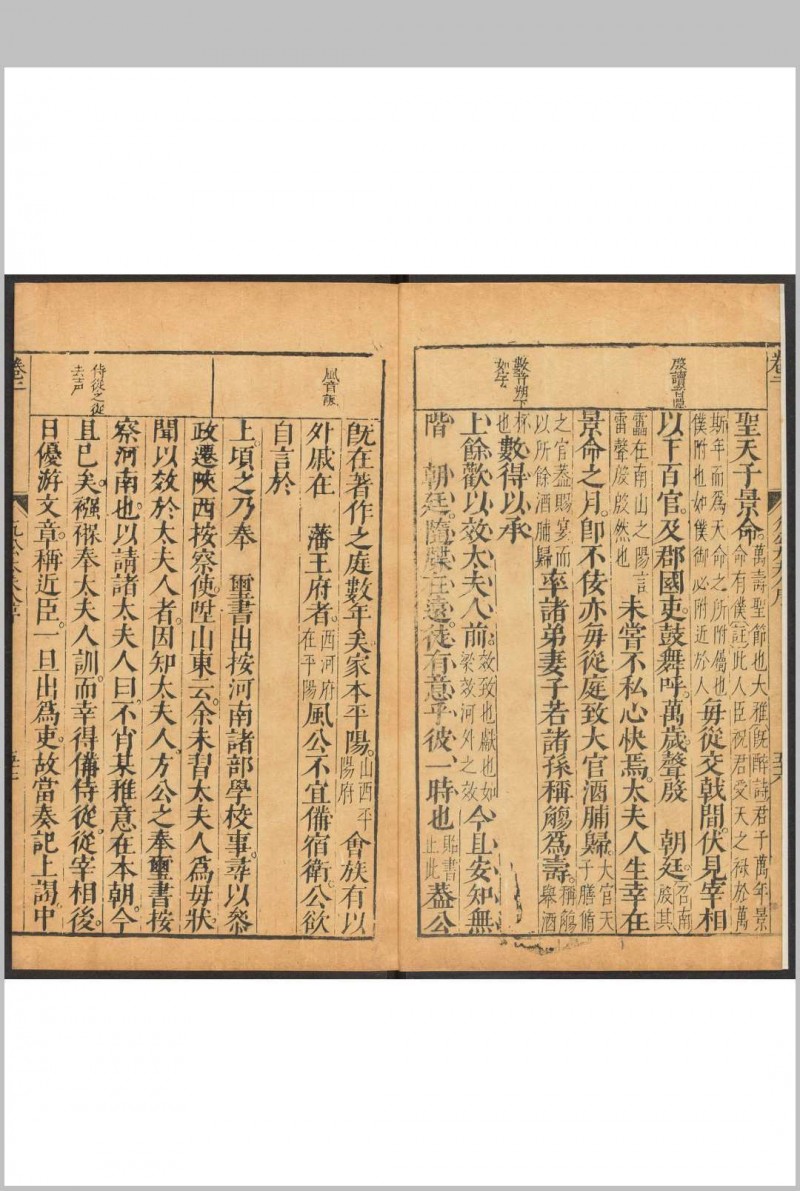 卷二
殷讀音隱
數音朔下
如字
聖天子景命。萬壽聖節也大雅旣醉詩君子萬年景命有僕註此人臣祝君受天之禄於萬
斯年而爲天命之所附屬也僕附也如僕御必附近於人毎從交戟間。伏見宰相
以下百官。及郡國吏鼓舞呼。萬歲聲殷 朝廷。召南殷其
靁在南山之陽言雷聲殷殷然也未嘗不私心快焉。太夫人生幸在
景命之月。卽不佞亦毎從庭致大官酒脯歸大官天子膳脩
之官葢賜宴而以所餘酒脯歸率諸弟妻子若諸孫稱觴爲壽。稱觴舉酒
杯也數得以承
上餘歡以效太夫人前效致也獻也如梁效河外之效今且安知無
階 朝廷。隨牒在遠。徒有意乎彼一時也貽書止此葢公
風音諷
侍從之從
去声
旣在著作之庭數年矣家本平陽。山西平陽府會族有以
外戚在 藩王府者。西河府在平陽風公不宜備宿衛。公欲
自言於
上。頃之乃奉 璽書出按河南諸部學校事。尋以叅
政遷陝西按察使。陞山東云。余未習太夫人爲毋狀。
聞以效於太夫人者。因知太夫人。方公之奉璽書按
察河南也。以請諸太夫人曰。不肖某雅意在本朝。今
且已矣。襁褓奉太夫人訓。而幸得備侍從。從宰相後。
日優游文章。稱近臣。一旦出爲吏。故當奏記上謁中
卷二